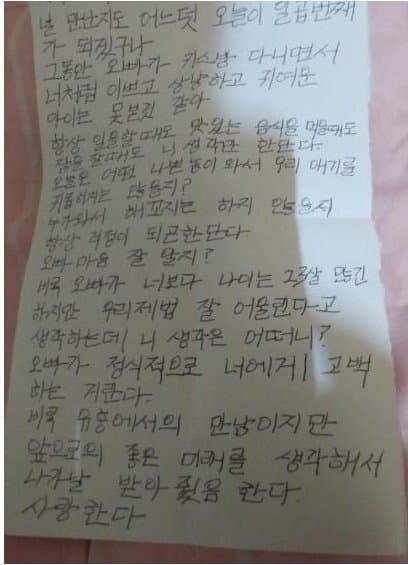 널 만난지도 어느덧 오늘이 일곱번째
가 되젔구나
그동안 오빠가 키스방 다니면서
너처럼 이쁘고 상냥하고 귀여운
아이는 못본것 같아
항상 일을할때도 맛있는 음식을 먹을때도
잠을 잘때도 니 생각만 한단다.
오늘은 어떤 나쁜놈이 와서 우리 애기를
키롭히지는 않을지?
누가와서 해꼬지는 하지 안을지
항상 걱정이 되곤한단다
오빠마음 잘 알지?
비록 오빠가 너보다 나이는 23살 많긴
하지만 우리제법 잘 어울린다고
생각하는데 니 생각은 어떠니?
오빠가 정식적으로 너에게 고백
하는 거란다.
비록 유흥에서의 만남이지만
앞으로의 좋은 미래를 생각해서
니가날 받아줬음 한다.
사랑한다